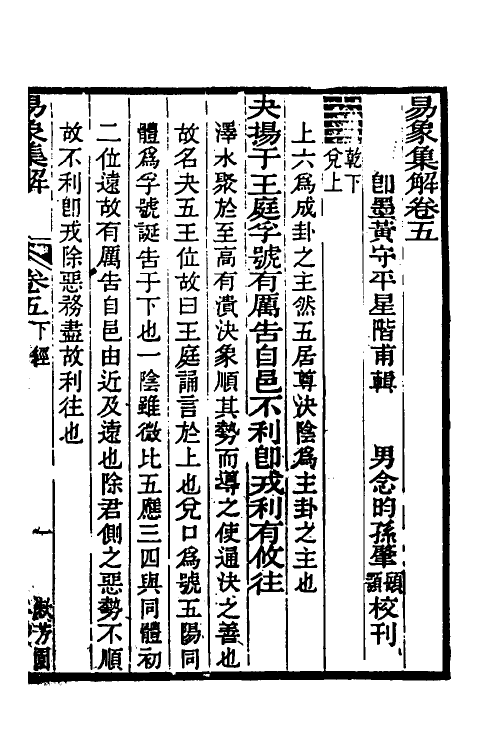 易象集解卷五
卽墨黃守平星階甫輯　男念昀孫肇碩顥校刊
乾下
兌上
上六爲成卦之主然五居尊決陰爲主卦之主也
夬揚于王庭孚號有厲告自邑不利卽戎利有攸往
澤水聚於至高有潰決象順其勢而導之使通決之善也
故名夬五王位故曰王庭誦言於上也兌口爲號五陽同
體爲孚號誕告于下也一陰雖微比五應三四與同體初
二位遠故有厲告自邑由近及遠也除君側之惡勢不順
故不利卽戎除惡務盡故利往也
易象集解
卷五下經
一
漱芳園